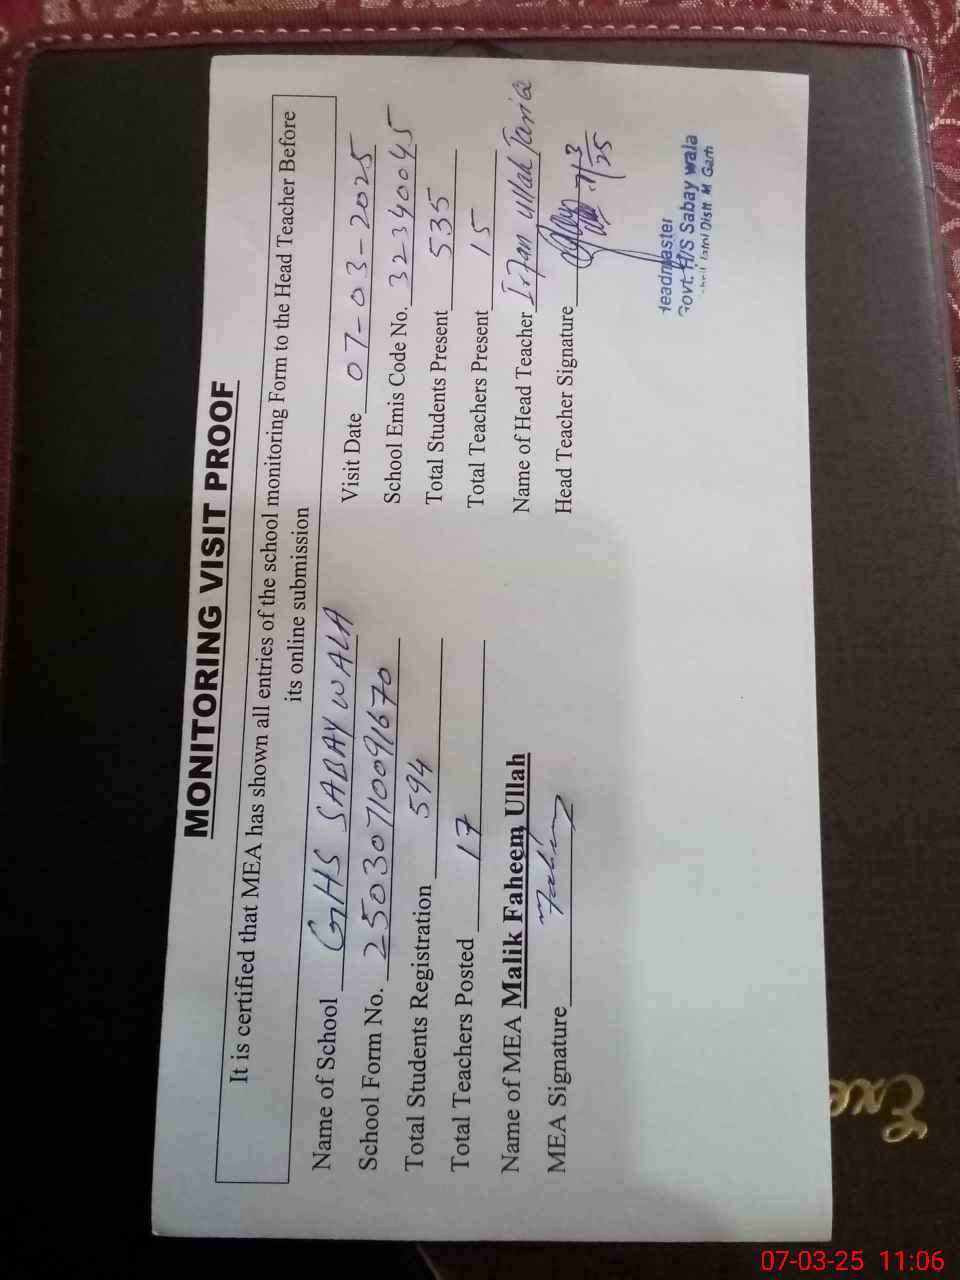 MONITORING VISIT PROOF
It is certified that MEA has shown all entries of the school monitoring Form to the Head Teacher Before
its online submission
Name of School GHS SABAY WALA Visit Date 07-03-2025
School Form No. 25030710091670 School Emis Code No. 32340045
Total Students Registration 594 Total Students Present 535
Total Teachers Posted 17 Total Teachers Present 15
Name of MEA Malik Faheem Ullah Name of Head Teacher Irfan Ullah Tariq
MEA Signature Fahim Head Teacher Signature 7/3/25
Headmaster
Govt. H/S Sabay wala
Distt M Garh
Exe
07-03-25 11:06